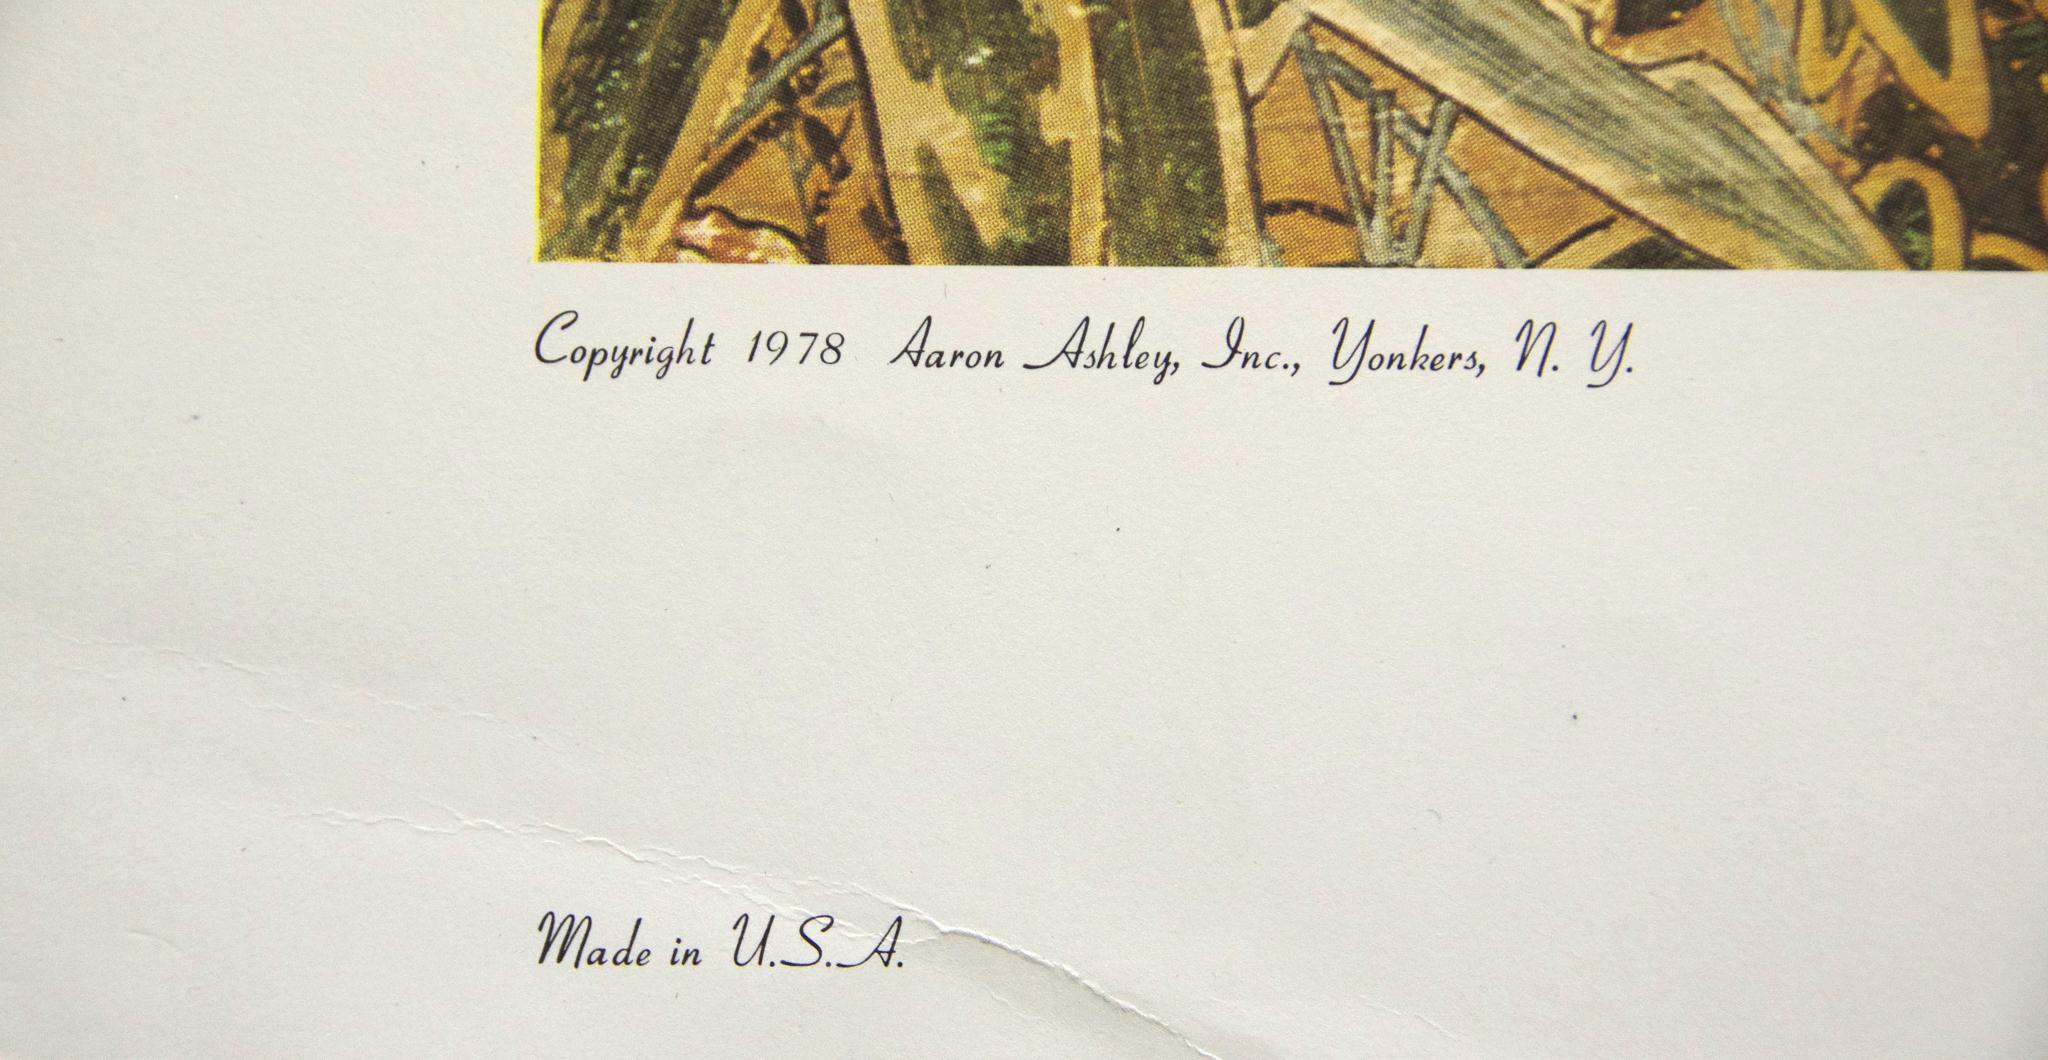 Copyright 1978 Aaron Ashley, Inc., Yonkers, N. Y.
Made in U.S.A.